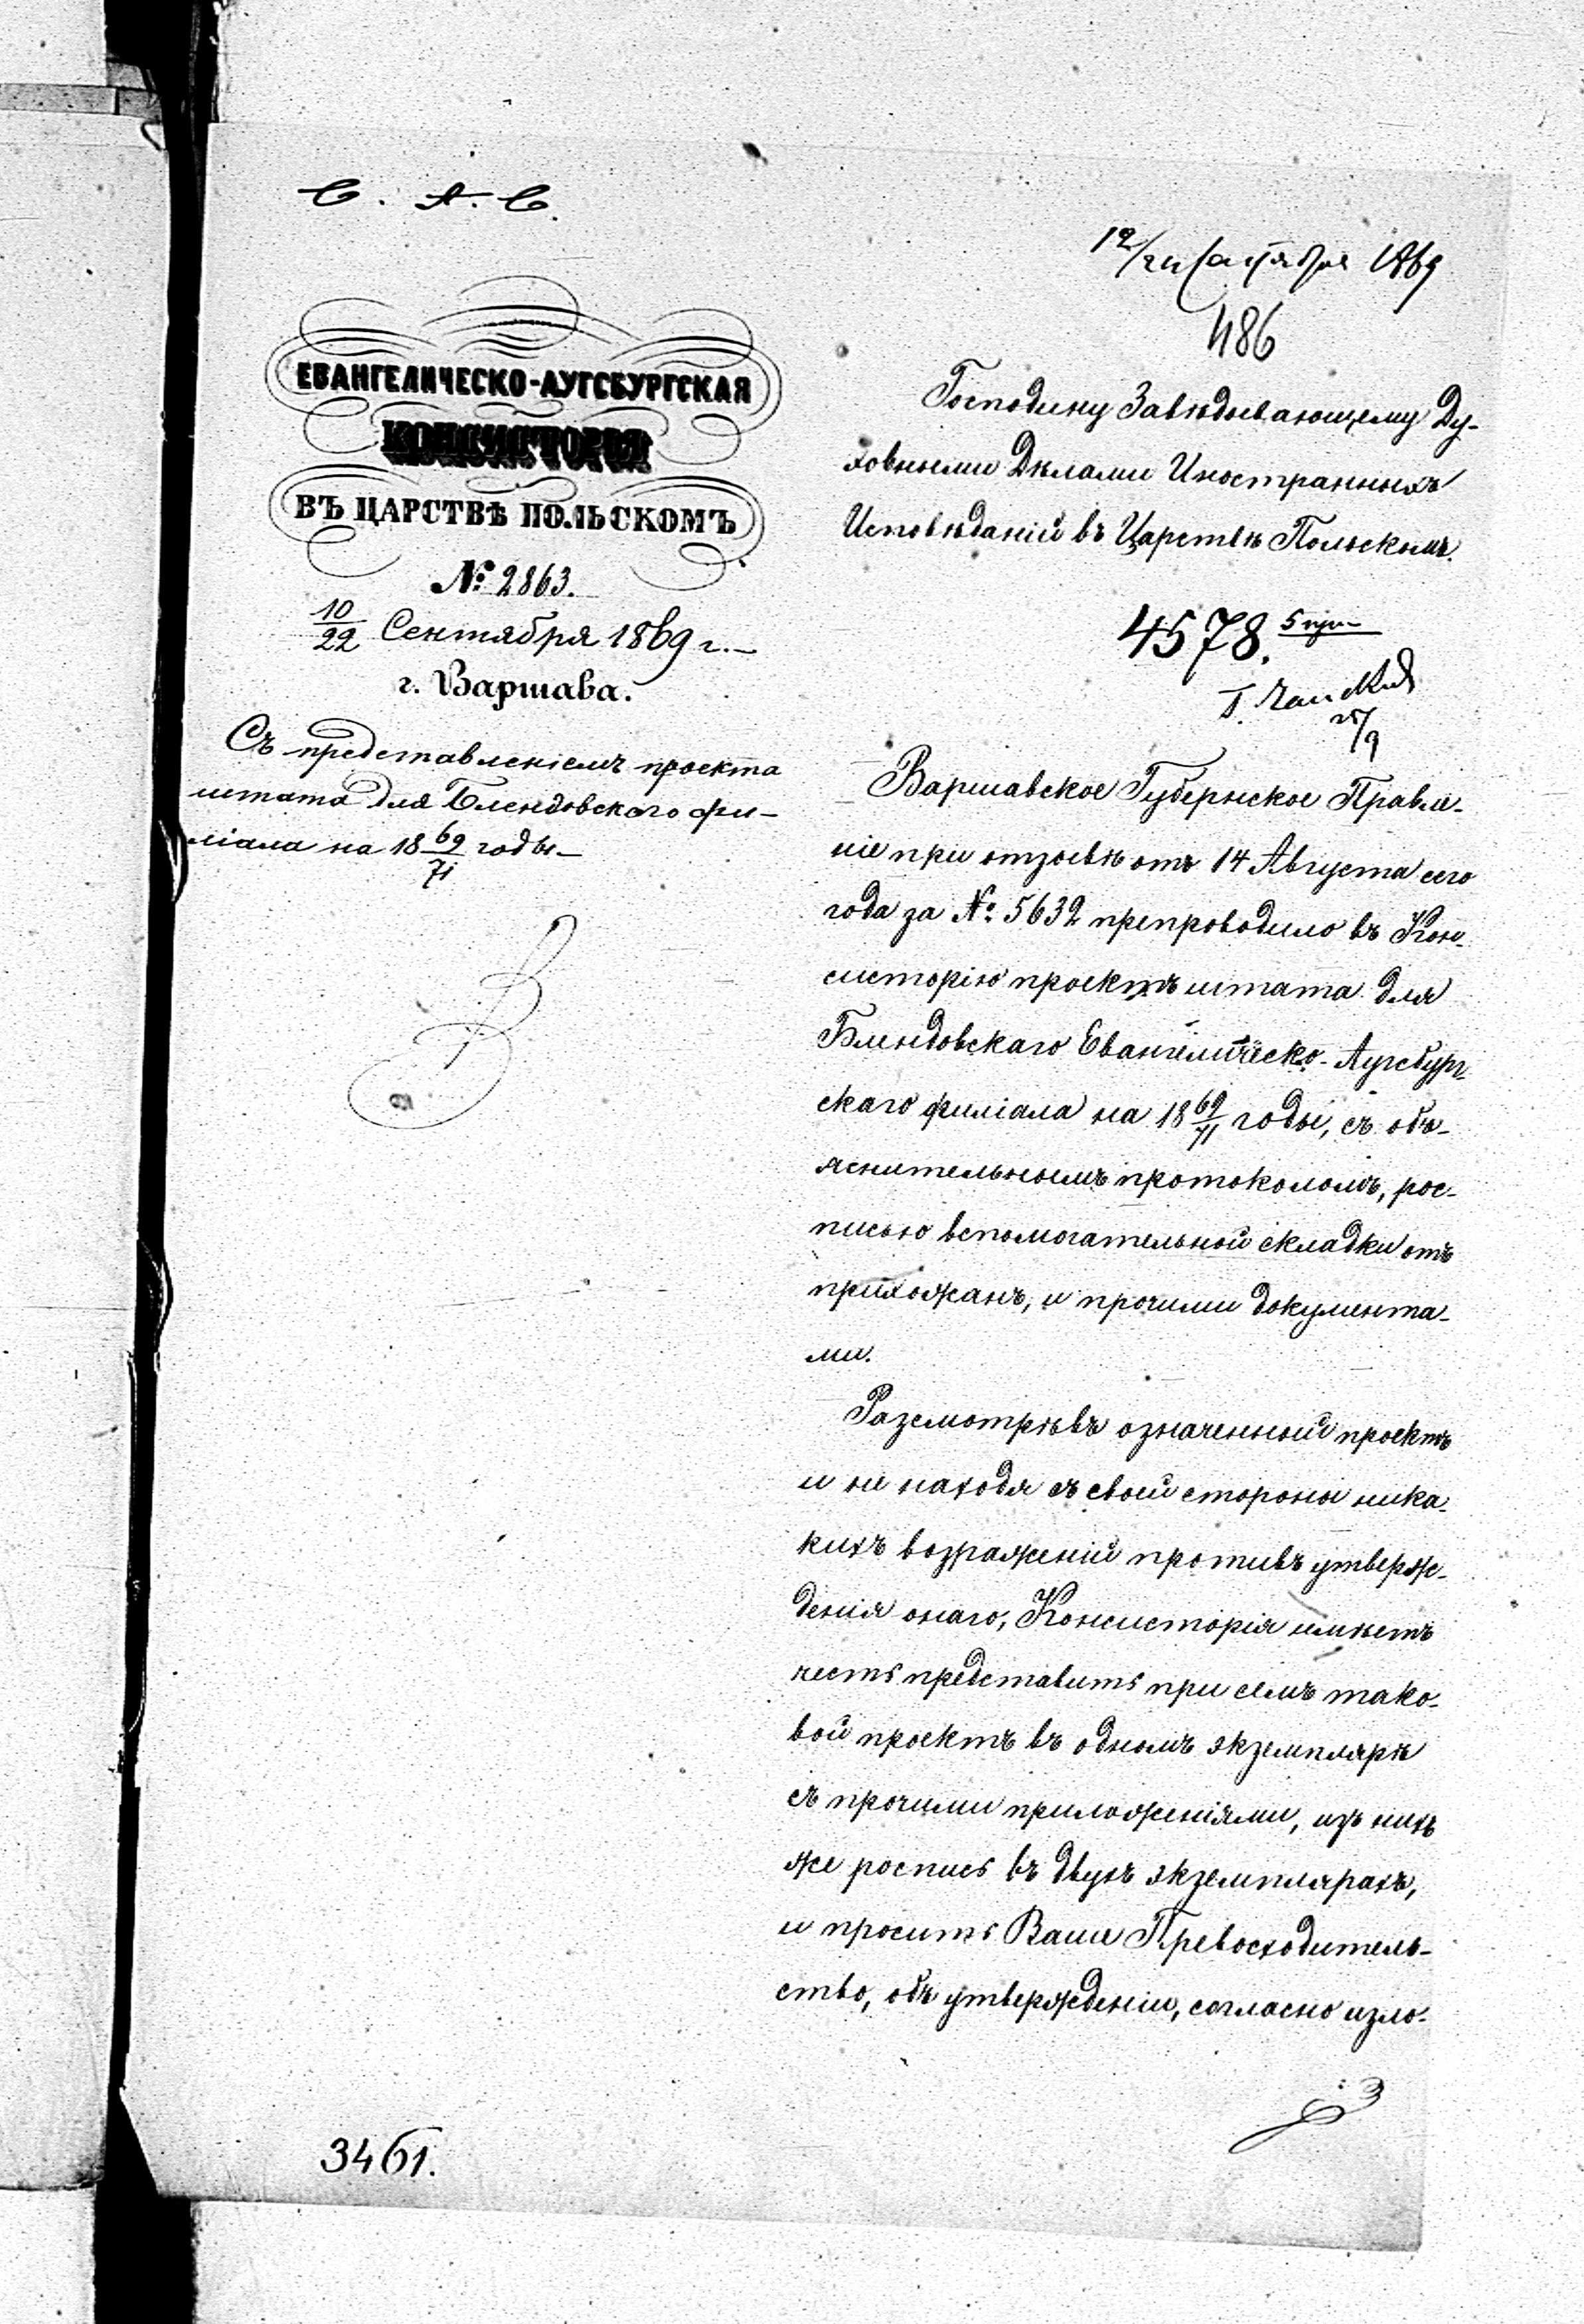 С. А. С.
ЕВАНГЕЛИЧЕСКО-АУГСБУРГСКАЯ
КОНСИСТОРІЯ
ВЪ ЦАРСТВѢ ПОЛЬСКОМЪ
№ 2863.
10/22 Сентября 1869 г.
г. Варшава.
Съ представленіемъ проекта
штата для Блендовскаго фи-
ліала на 18 69/71 годы.
12/24 Сентября 1869
486
Господину Завѣдывающему Ду-
ховными Дѣлами Иностранныхъ
Исповѣданій въ Царствѣ Польскомъ.
4578. 5 при
25/9
Варшавское Губернское Правле-
ніе при отзывѣ отъ 14 Августа сего
года за № 5632 препроводило въ Кон-
систорію проектъ штата для
Блендовскаго Евангелическо-Аугсбург-
скаго филіала на 18 69/71 годы, съ объ-
яснительнымъ протоколомъ, рос-
писью вспомогательной складки отъ
прихожанъ, и прочими документа-
ми.
Разсмотрѣвъ означенный проектъ
и не находя съ своей стороны ника-
кихъ возраженій противъ утверж-
денія онаго, Консисторія имѣетъ
честь представить при семъ тако-
вой проектъ въ одномъ экземплярѣ
съ прочими приложеніями, изъ нихъ
же роспись въ двухъ экземплярахъ,
и просить Ваше Превосходитель-
ство, объ утвержденіи, согласно изло-
3461.